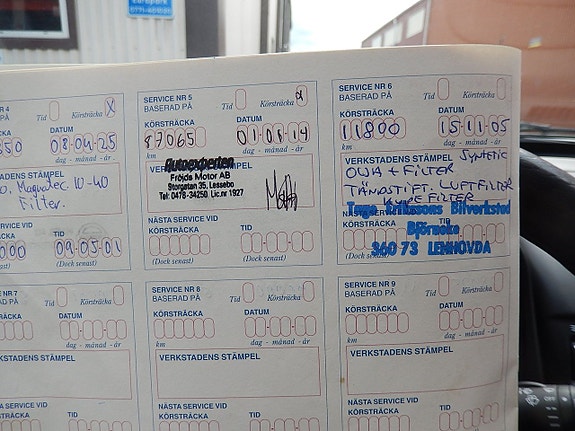 0771-401500
SERVICE NR 5
BASERAD PÅ
Tid
Körsträcka
X
KÖRSTRÄCKA
DATUM
87065
km
dag - månad - år
VERKSTADENS STÄMPEL
Autoexperten
Fröjds Motor AB
Storgatan 35, Lessebo
Tel. 0478-34250. Lic.nr 1927
NÄSTA SERVICE VID
KÖRSTRÄCKA
TID
(Dock senast)
SERVICE NR 6
BASERAD PÅ
Tid
Körsträcka
KÖRSTRÄCKA
DATUM
11800
15 11 05
km
dag - månad - år
VERKSTADENS STÄMPEL
SYNTETIC
OLJA + FILTER
TÄNDSTIFT. LUFTFILTER
FILTER
Erikssons Bilverkstad
360 73 LENHOVDA
NÄSTA SERVICE VID
KÖRSTRÄCKA
(Dock senast)
4
Körsträcka
X
KÖRSTRÄCKA
DATUM
08 04 25
dag - månad - år
STÄMPEL
10-40
Filter.
SERVICE VID
TID
09 05 01
(Dock senast)
NR 7
Tid
Körsträcka
DATUM
dag - månad - år
VERKSTADENS STÄMPEL
SERVICE VID
TID
SERVICE NR 8
BASERAD PÅ
Tid
Körsträcka
KÖRSTRÄCKA
DATUM
km
dag - månad - år
VERKSTADENS STÄMPEL
NÄSTA SERVICE VID
KÖRSTRÄCKA
TID
SERVICE NR 9
BASERAD PÅ
Tid
Körsträcka
KÖRSTRÄCKA
DATUM
km
dag - månad - år
VERKSTADENS STÄMPEL
NÄSTA SERVICE VID
KÖRSTRÄCKA
TID